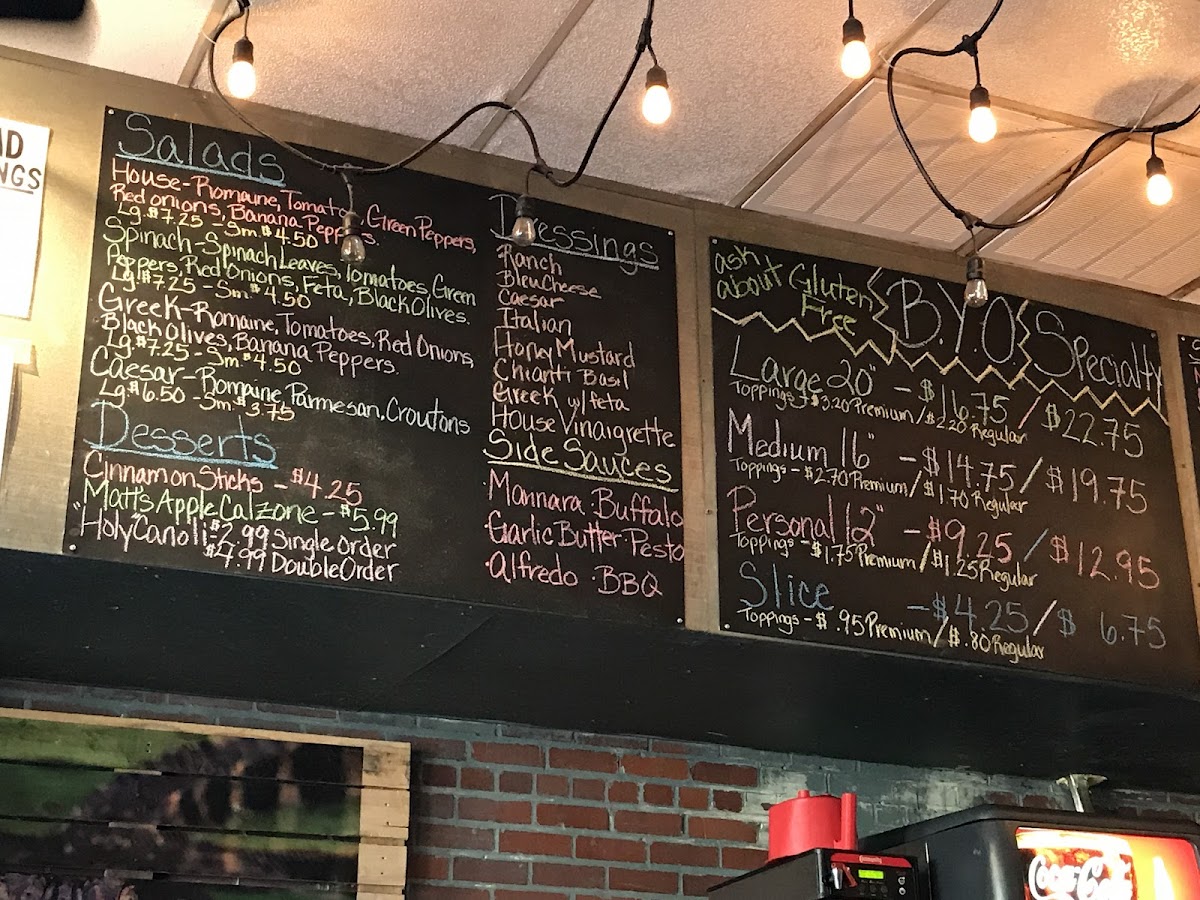 AD
NGS
Salads
House-Romaine, Tomatoes, Green Peppers,
Red onions, Banana Peppers.
Lg. $7.25 - Sm. $4.50
Spinach-Spinach Leaves, Tomatoes, Green
Peppers, Red Onions, Feta, Black Olives.
Lg. $7.25 - Sm. $4.50
Greek-Romaine, Tomatoes, Red Onions,
Black Olives, Banana Peppers.
Lg. $7.25 - Sm. $4.50
Caesar-Romaine, Parmesan, Croutons
Lg. $6.50 - Sm. $3.75
Desserts
Cinnamon Sticks - $4.25
Matt's Apple Calzone - $5.99
"Holy Canolli - $2.99 Single Order
$4.99 Double Order
Dressings
Ranch
Bleu Cheese
Caesar
Italian
Honey Mustard
Chianti Basil
Greek w/feta
House Vinaigrette
Side Sauces
·Marinara ·Buffalo
·Garlic Butter ·Pesto
·Alfredo ·BBQ
ask
about Gluten
Free
B.Y.O
Specialty
Large 20" - $16.75 / $22.75
Toppings - $3.20 Premium / $2.20 Regular
Medium 16" - $14.75 / $19.75
Toppings - $2.70 Premium / $1.70 Regular
Personal 12" - $9.25 / $12.95
Toppings - $1.75 Premium / $1.25 Regular
Slice - $4.25 / $ 6.75
Toppings - $ .95 Premium / $ .80 Regular
Coca-Cola